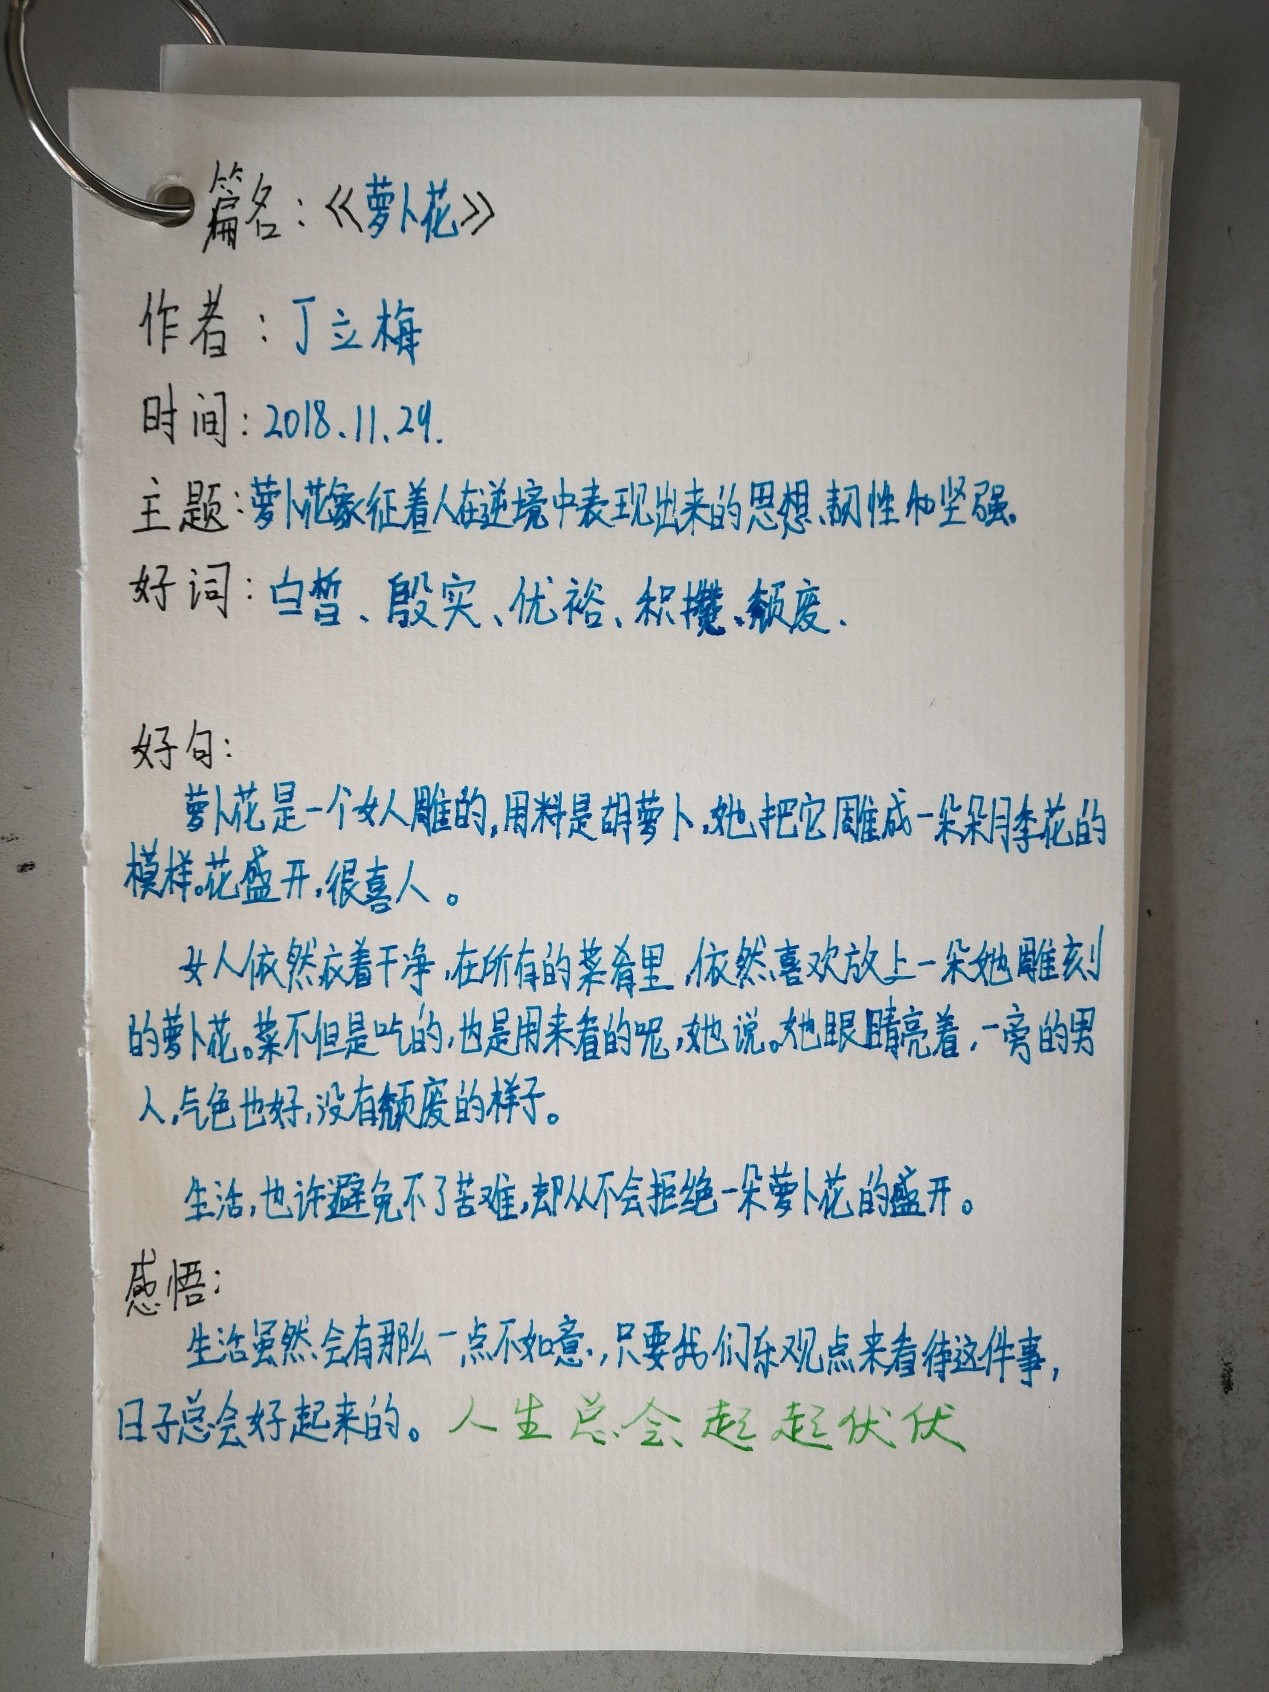 篇名：《萝卜花》
作者：丁立梅
时间：2018.11.29.
主题：萝卜花象征着人在逆境中表现出来的思想、韧性和坚强。
好词：白皙、殷实、优裕、积攒、颓废.
好句：
萝卜花是一个女人雕的，用料是胡萝卜，她把它雕成一朵朵月季花的
模样。花盛开，很喜人。
女人依然衣着干净，在所有的菜肴里，依然喜欢放上一朵她雕刻
的萝卜花。菜不但是吃的，也是用来看的呢，她说。她眼睛亮着，一旁的男
人，气色也好，没有颓废的样子。
生活，也许避免不了苦难，却从不会拒绝一朵萝卜花的盛开。
感悟：
生活虽然会有那么一点不如意，只要我们乐观点来看待这件事，
日子总会好起来的。人生总会起起伏伏